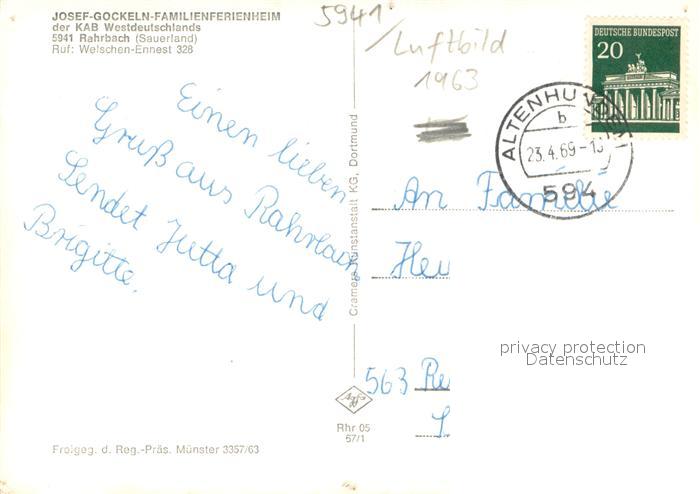 JOSEF-GOCKELN-FAMILIENFERIENHEIM
der KAB Westdeutschlands
5941 Rahrbach (Sauerland)
Ruf: Welschen-Ennest 328
5941
Luftbild
1963
DEUTSCHE BUNDESPOST
20
ALTENHUNDEM
b
23.4.69-1
594
Einen lieben
Gruß aus Rahrbach
Sendet Jutta und
Brigitte.
Cramers Kunstanstalt KG, Dortmund
An Familie
Heu
563 Re
privacy protection
Datenschutz
Agfa
Rhr 05
57/1
Freigeg. d. Reg.-Präs. Münster 3357/63